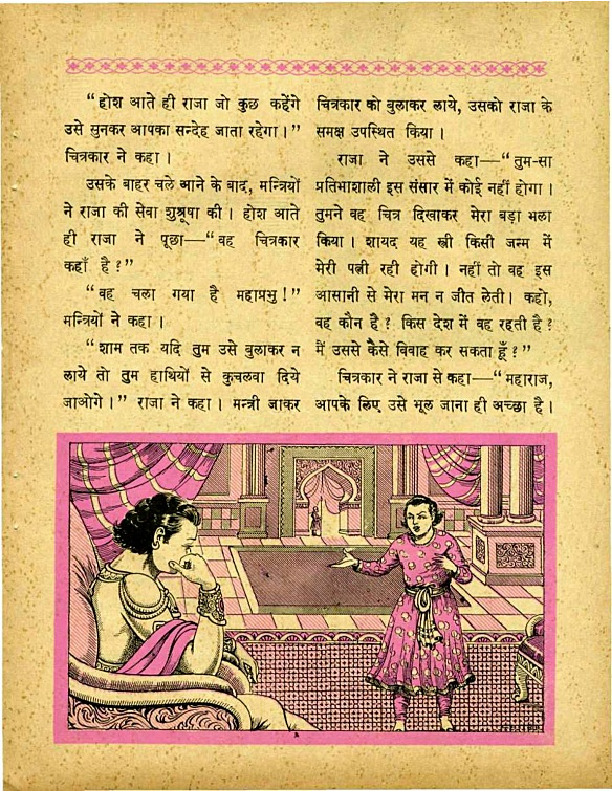 “होश आते ही राजा जो कुछ कहेंगे
उसे सुनकर आपका सन्देह जाता रहेगा।”
चित्रकार ने कहा।
उसके बाहर चले आने के बाद, मन्त्रियों
ने राजा की सेवा शुश्रूषा की। होश आते
ही राजा ने पूछा—“वह चित्रकार
कहाँ है?”
“वह चला गया है महाप्रभु!”
मन्त्रियों ने कहा।
“शाम तक यदि तुम उसे बुलाकर न
लाये तो तुम हाथियों से कुचलवा दिये
जाओगे।” राजा ने कहा। मन्त्री जाकर
चित्रकार को बुलाकर लाये, उसको राजा के
समक्ष उपस्थित किया।
राजा ने उससे कहा—“तुम-सा
प्रतिभाशाली इस संसार में कोई नहीं होगा।
तुमने वह चित्र दिखाकर मेरा बड़ा भला
किया। शायद यह स्त्री किसी जन्म में
मेरी पत्नी रही होगी। नहीं तो वह इस
आसानी से मेरा मन न जीत लेती। कहो,
वह कौन है? किस देश में वह रहती है?
मैं उससे कैसे विवाह कर सकता हूँ?”
चित्रकार ने राजा से कहा—“महाराज,
आपके लिए उसे भूल जाना ही अच्छा है।